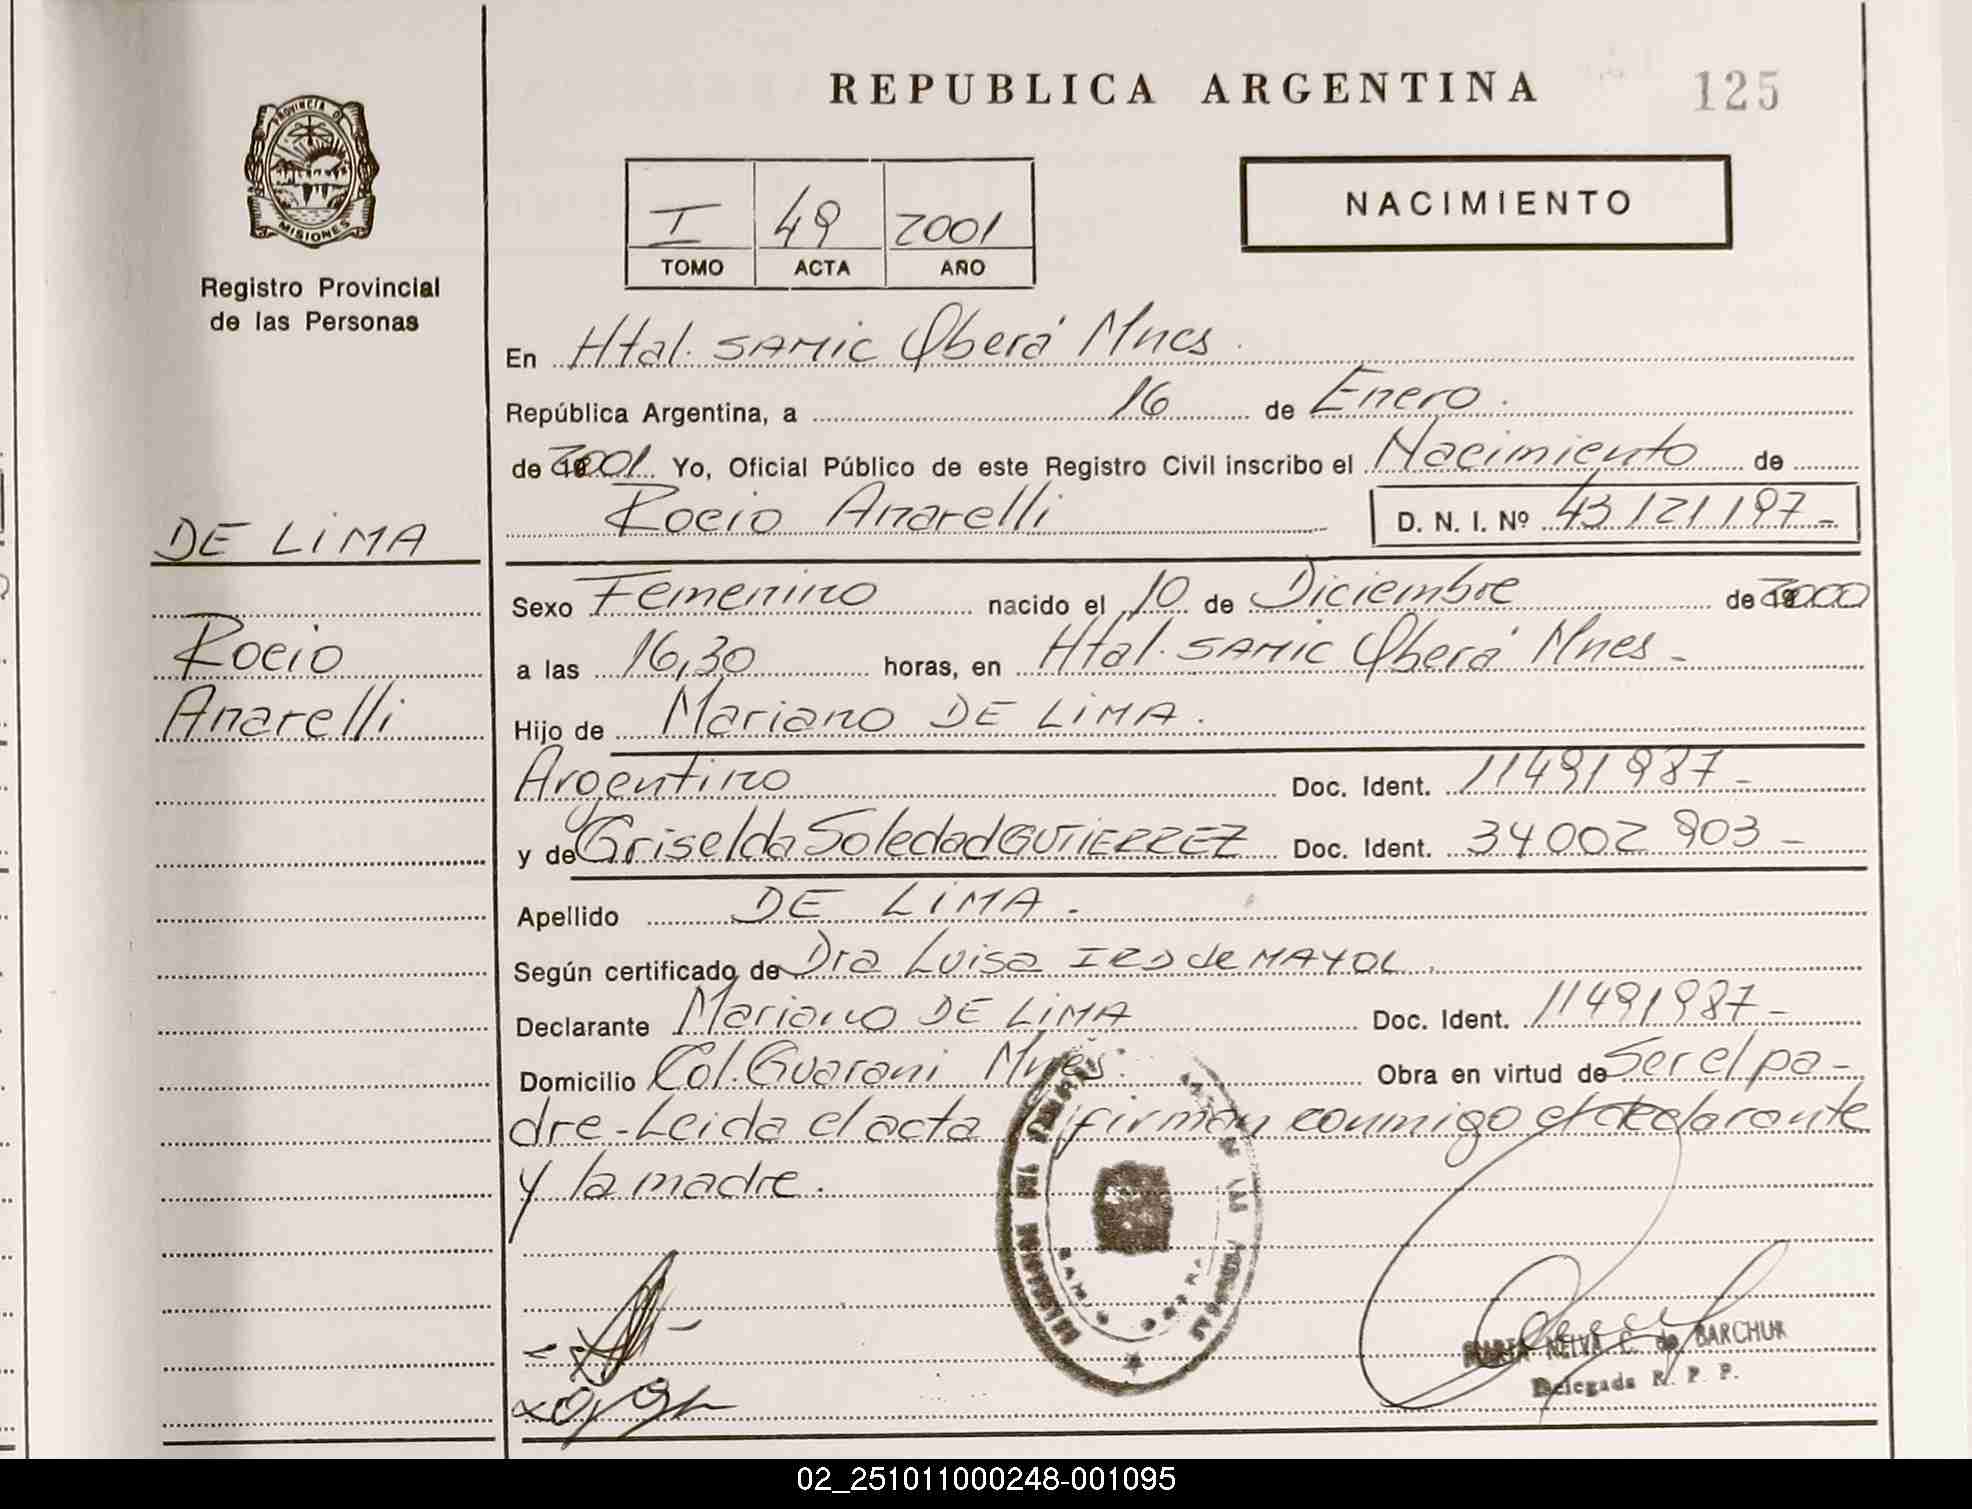 REPUBLICA ARGENTINA
125
PROVINCIA DE
MISIONES
Registro Provincial
de las Personas
I 49 2001
TOMO ACTA AÑO
NACIMIENTO
En Htal. SAMIC Oberá Mnes.
República Argentina, a 16 de Enero.
de 2001 Yo, Oficial Público de este Registro Civil inscribo el Nacimiento de
Rocio Anarelli D. N. I. Nº 43121197-
DE LIMA
Rocio
Anarelli
Sexo Femenino nacido el 10 de Diciembre de 2000
a las 16,30 horas, en Htal. SAMIC Oberá Mnes-
Hijo de Mariano DE LIMA.
Argentino Doc. Ident. 11491987-
y de Griselda Soledad GUTIERREZ Doc. Ident. 34002903-
Apellido DE LIMA.
Según certificado de Dra Luisa de MAYOL
Declarante Mariano DE LIMA Doc. Ident. 11491987-
Domicilio Col. Guarani Mnes. Obra en virtud de Ser el pa-
dre-Leida el acta firman conmigo el declarante
y la madre.
MARIA NELVA C. de BARCHUK
Delegada R. P. P.
02_251011000248-001095